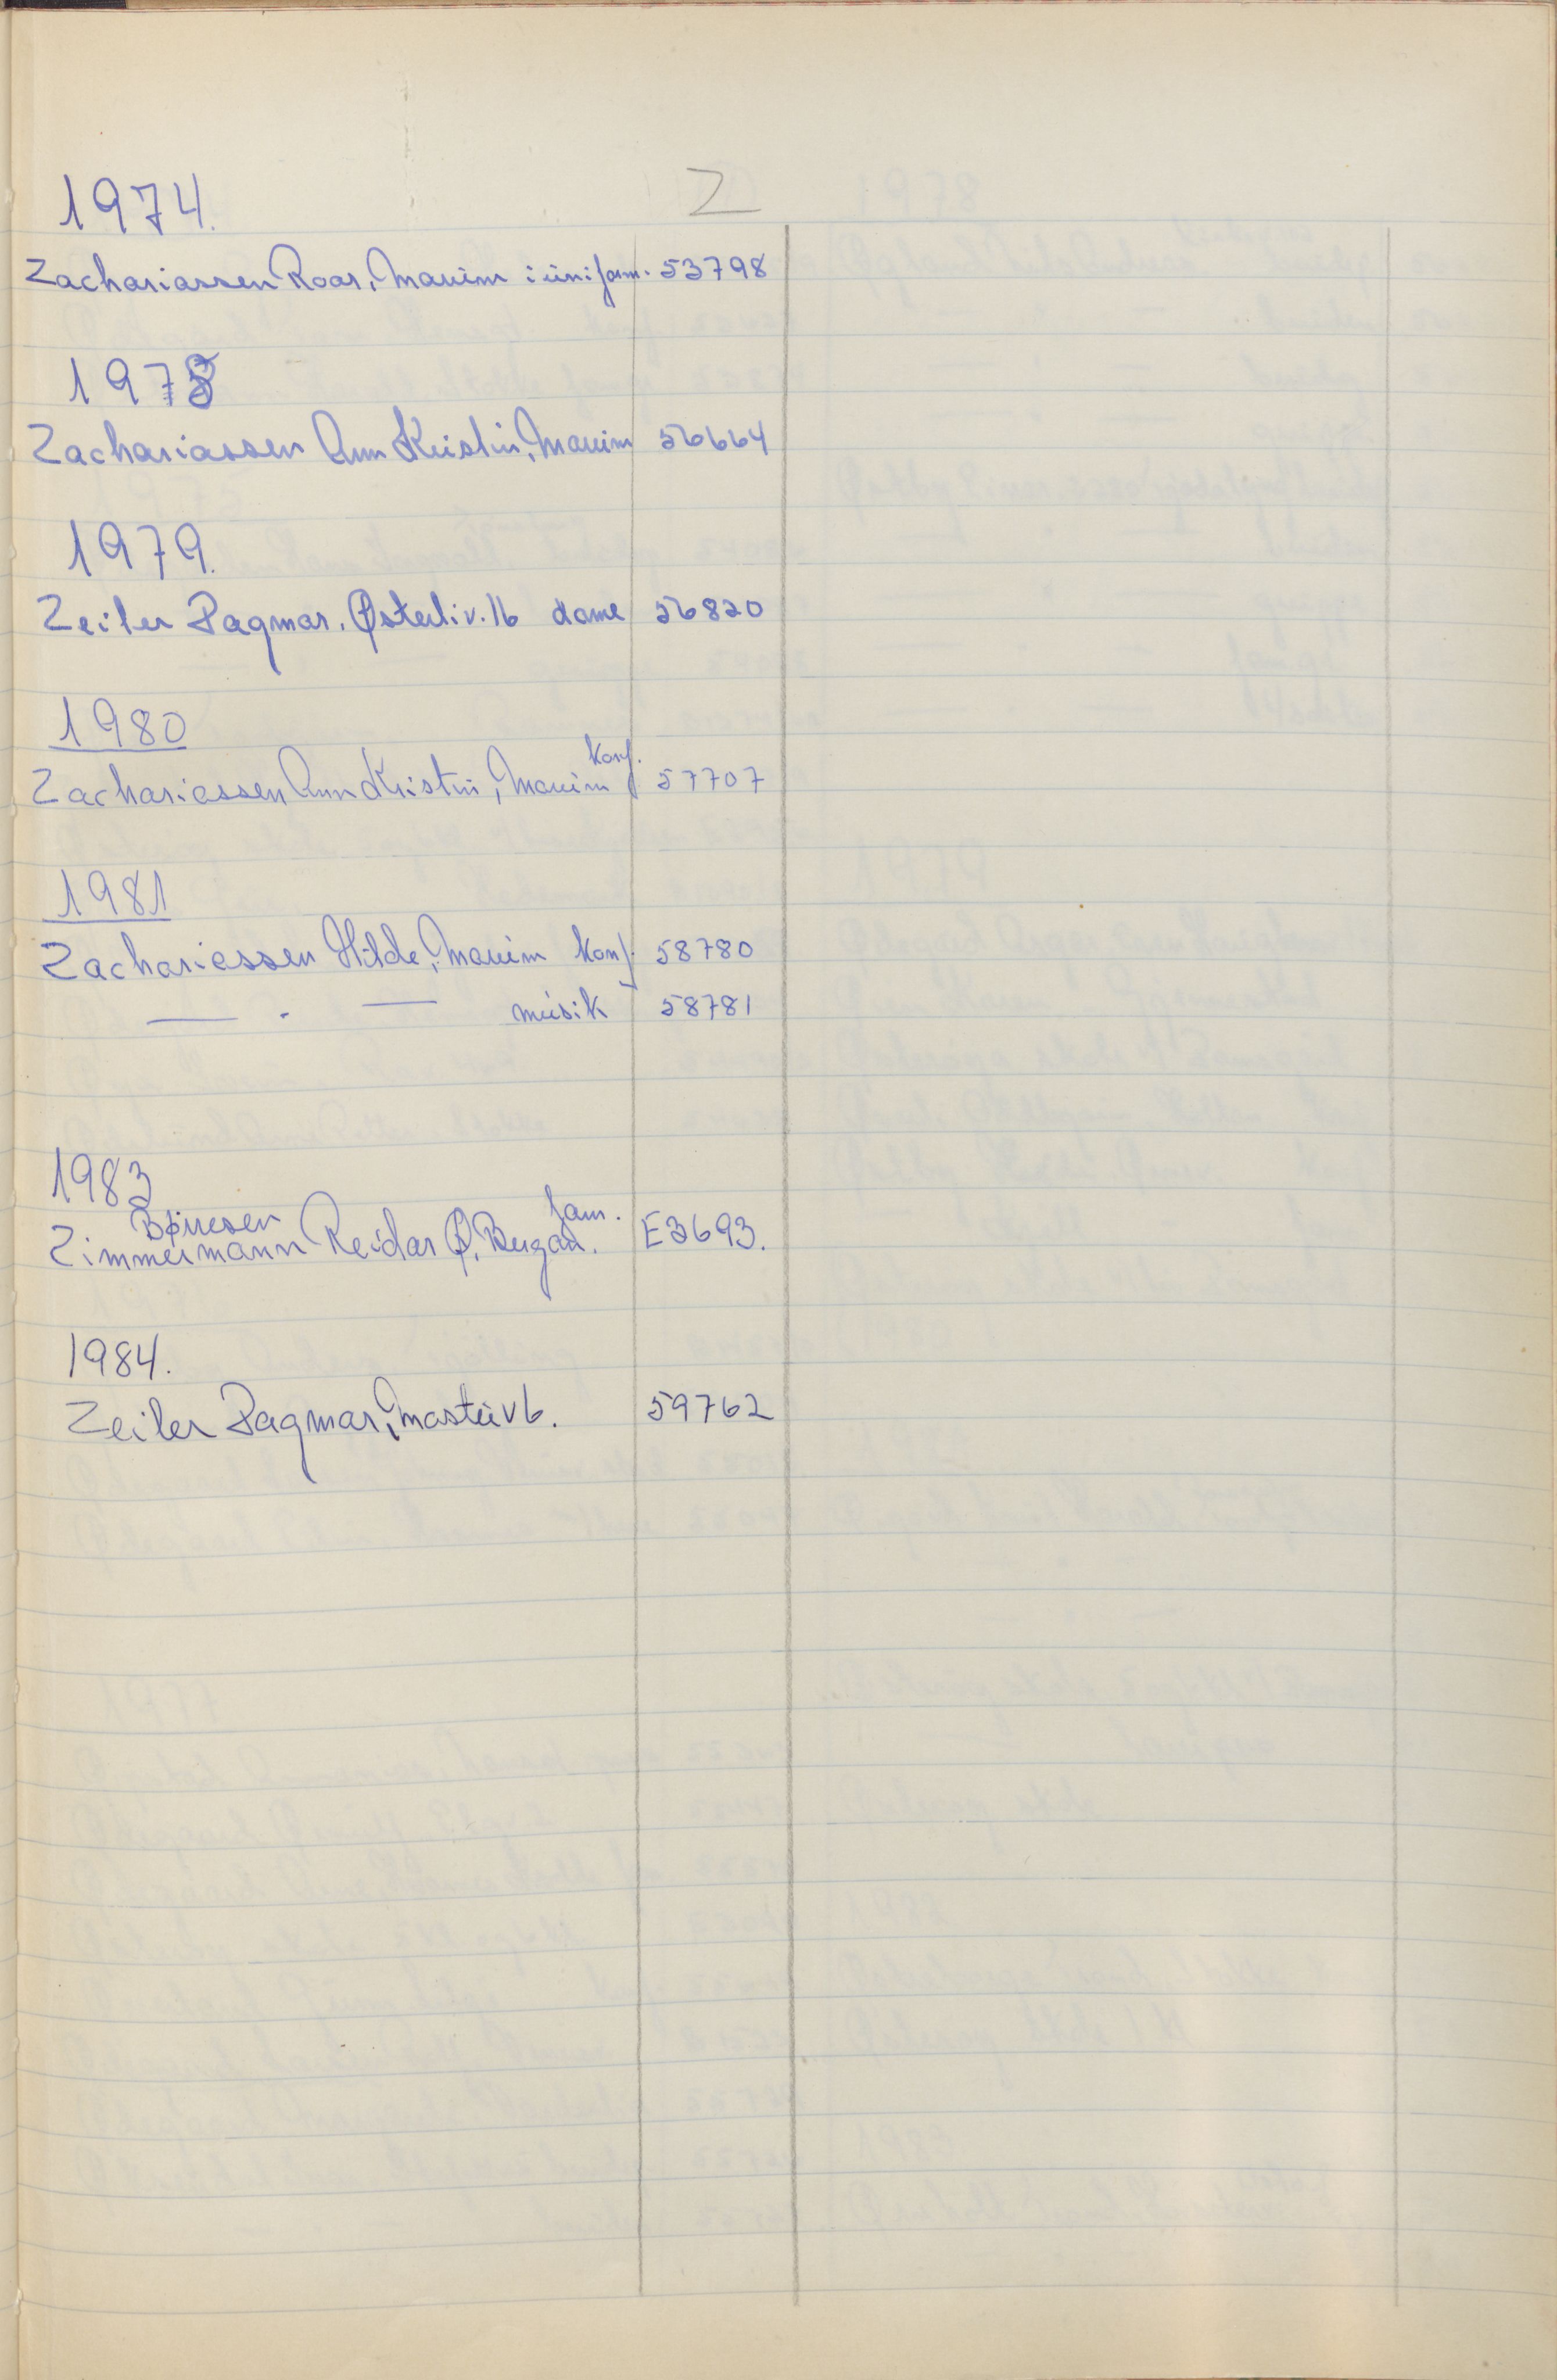 Z
1974.
Zachariassen Roar, Mauim i uniform. 53798
1978
Zachariassen Ann Kristin, Mauim 56664
1979.
Zeiler Dagmar, Østerliv. 16 dame 56820
1980
Zachariassen Ann Kristin, Mauim Konf. 57707
1981
Zachariassen Hilde, Mauim Konf. 58780
— . — musik 58781
1983
Børresen fam.
Zimmermann Reidar Ø. E3693.
1984.
Zeiler Dagmar, 59762